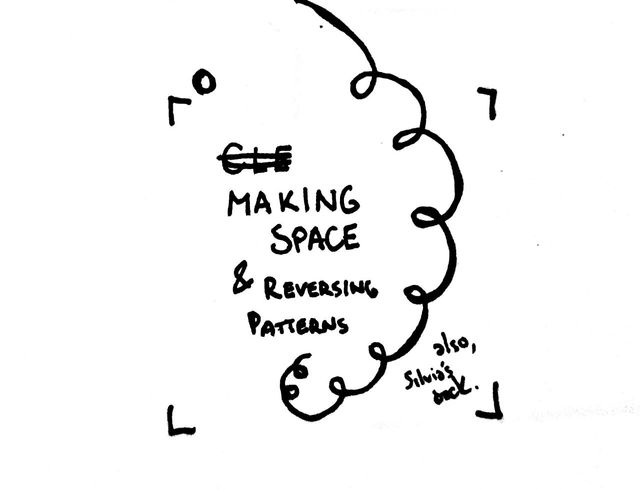 CLE
MAKING
SPACE
& REVERSING
PATTERNS
also,
Silvia's